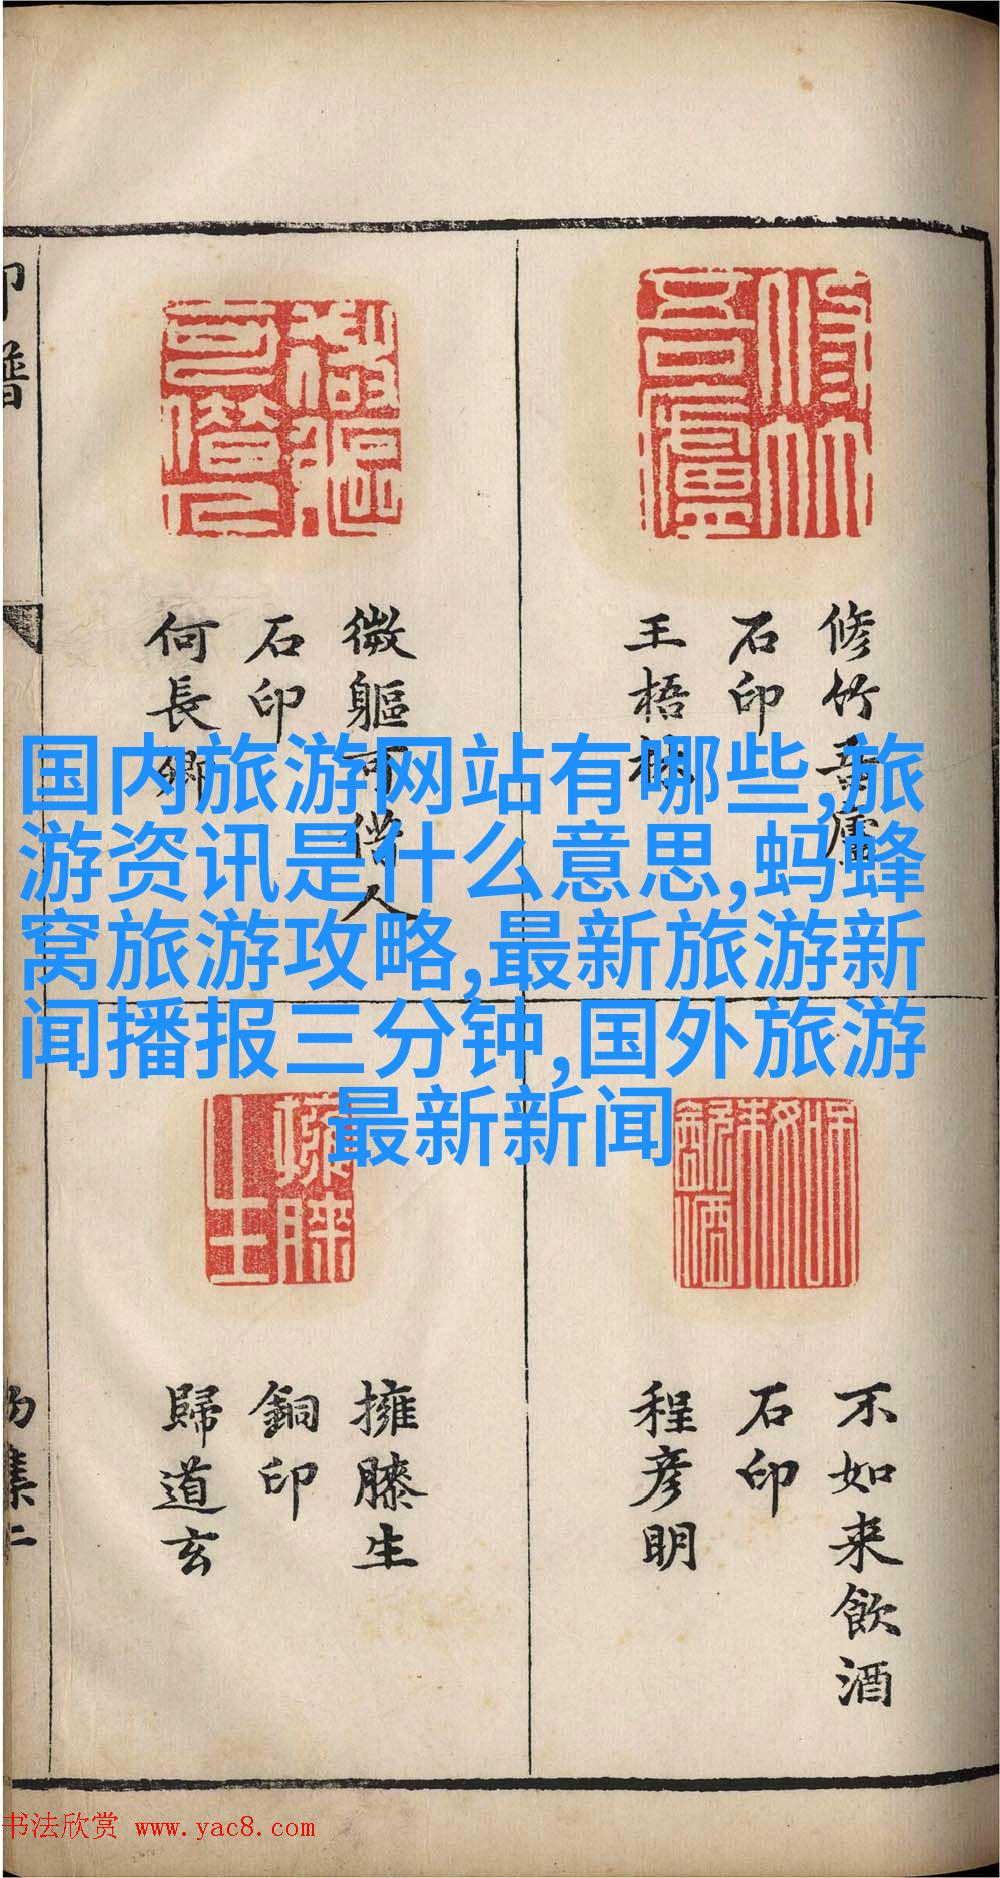 国内旅游网站有哪些,旅
游资讯是什么意思,蚂蜂
窝旅游攻略,最新旅游新
闻播报三分钟,国外旅游
最新新闻
修竹吾廬
石印
王梧林
微軀可借人
石印
何長卿
不如来飲酒
石印
程彦明
擁膝生
銅印
歸道玄
印譜
书法欣赏 www.yac8.com